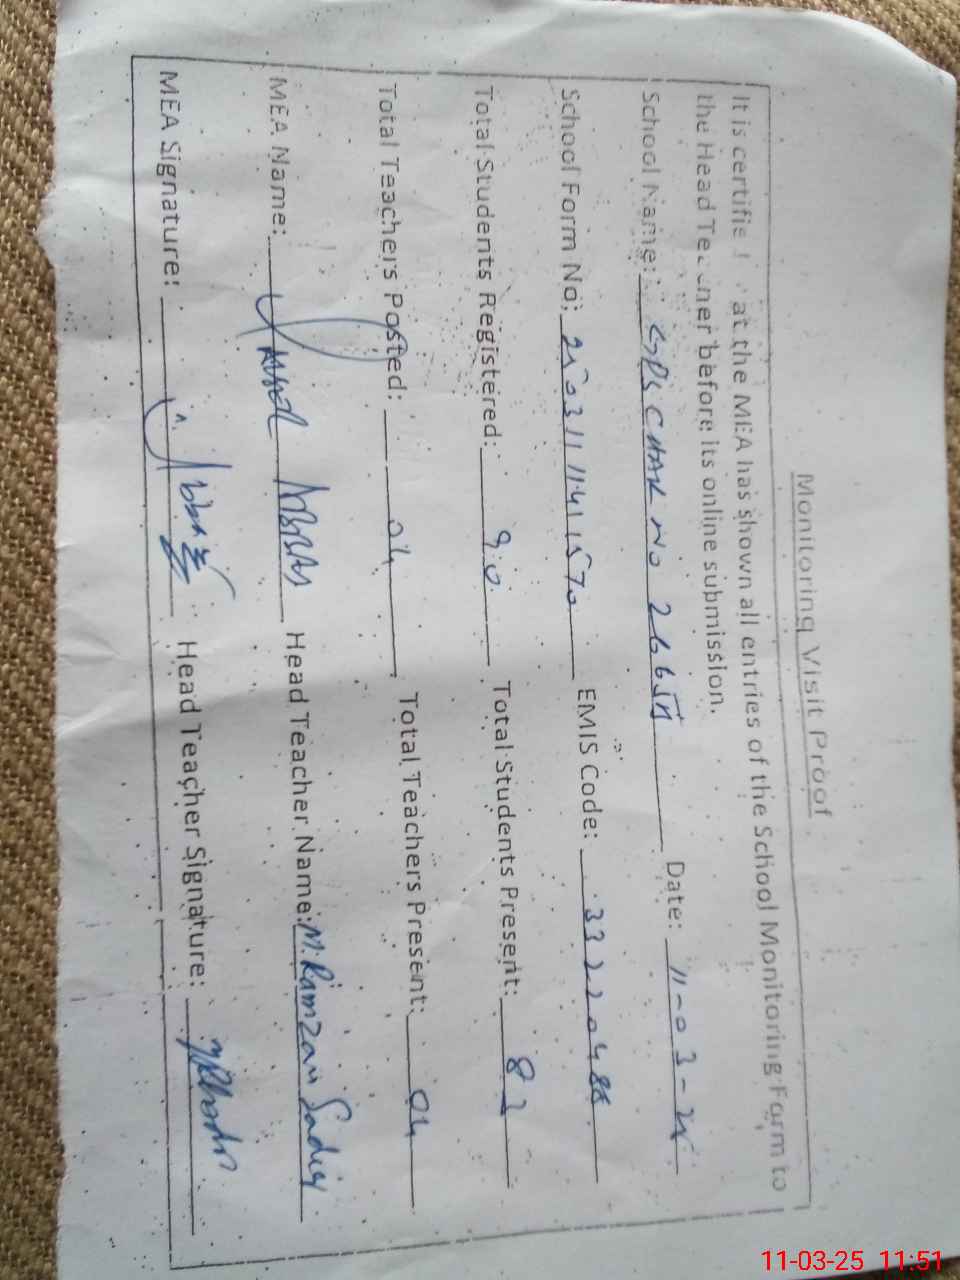 Monitoring Visit Proof
It is certified that the MEA has shown all entries of the School Monitoring Form to
the Head Teacher before its online submission.
School Name: GPS CHAK NO 266 Date: 11-03-25
School Form No: EMIS Code: 33220488
Total Students Registered: 90 Total Students Present: 82
Total Teachers Posted: 04 Total Teachers Present: 04
MEA Name: Abbas Head Teacher Name: M. Ramzan Sadiq
MEA Signature: Head Teacher Signature:
11-03-25 11:51